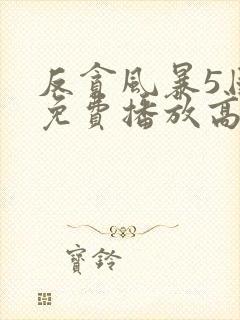 反貪風暴5
免費播放高
寶鈴